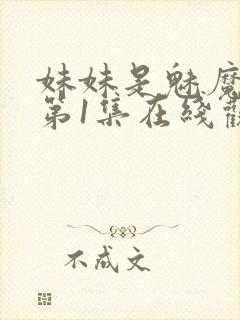 妹妹是魅魔
第1集在线
不成文